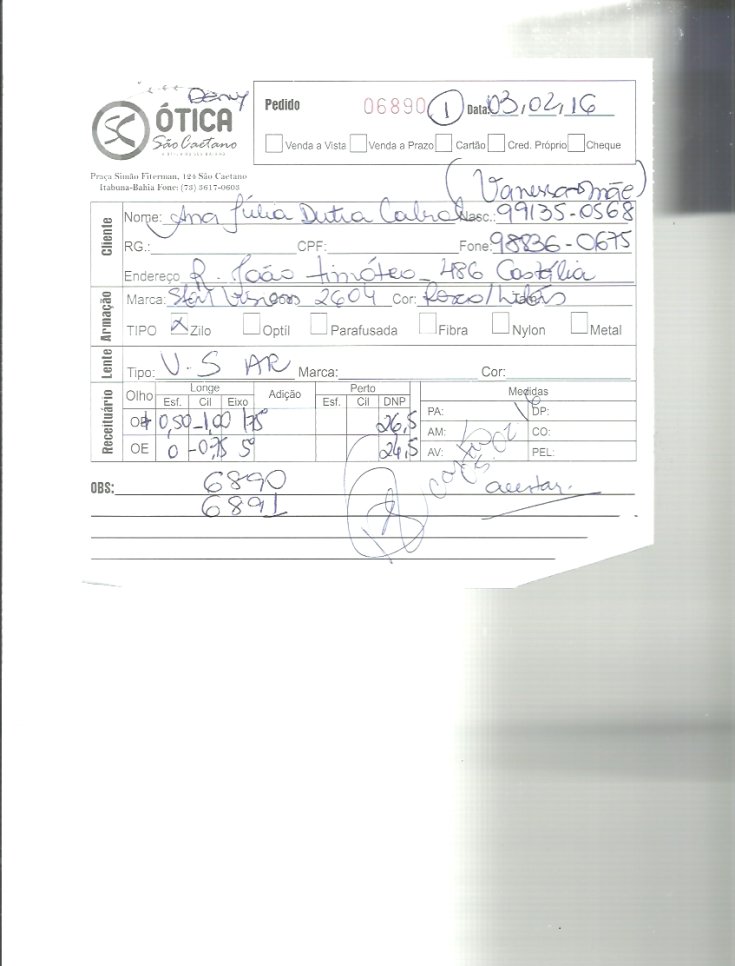 Deny
ÓTICA
São Caetano
Praça Simão Fiterman, 124 São Caetano
Itabuna-Bahia Fone: (73) 3617-0603
Pedido 06890 1 Data: 03,02,16
Venda a Vista Venda a Prazo Cartão Cred. Próprio Cheque
(Vanessa mãe)
Cliente
Nome: Ana Júlia Dutra Cabral Nasc.: 99135-0568
RG.: CPF: Fone: 98836-0675
Endereço R. João timóteo 486 Castólia
Armação
Marca: 2604 Cor: Roxo/
TIPO x Zilo Optil Parafusada Fibra Nylon Metal
Lente
Tipo: V.S AR Marca: Cor:
Receituário
Olho Longe Adição Perto Medidas
Esf. Cil Eixo Esf. Cil DNP
OD + 0,50 -1,00 175° 26,5 PA: DP:
AM: CO:
OE 0 -0,75 5° 24,5 AV: PEL:
OBS: 6890
6891
acertar.